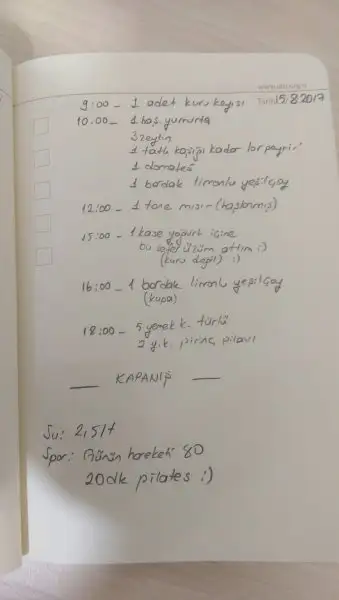 15.8.2017
9:00 - 1 adet kuru kayısı
10.00 - 1 haş. yumurta
3 zeytin
1 tatlı kaşığı kadar lor peyniri
1 domates
1 bardak limonlu yeşilçay
12:00 - 1 tane mısır (haşlanmış)
15:00 - 1 kase yoğurt içine
bu sefer üzüm attım :)
(kuru değil) :)
16:00 - 1 bardak limonlu yeşilçay
(kupa)
18:00 - 5 yemek k. türlü
2 y.k. pirinç pilavı
KAPANIŞ
Su: 2,5 lt
Spor: Günün hareketi 80
20dk pilates :)